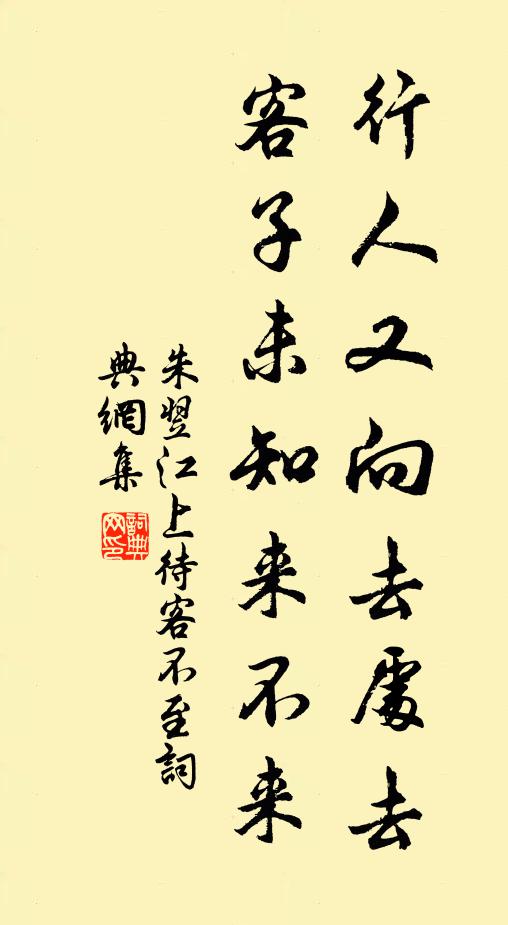 行人又向去處去
客子未知来不来
朱翌江上待客不至詞
典網集
詞典
网印